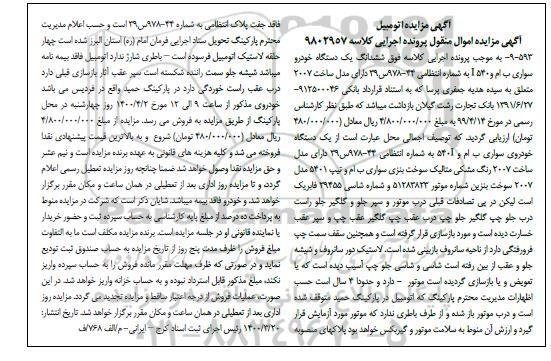 آگهی مزایده اتومبیل
آگهی مزایده اموال منقول پرونده اجرایی کلاسه ۹۸۰۲۹۵۷
۹-۵۹۳- به موجب پرونده اجرایی کلاسه فوق ششدانگ یک دستگاه خودرو
سواری ب ام و ۵۴۰ I به شماره انتظامی ۴۴-۹۷۸س۳۹ دارای مدل ساخت ۲۰۰۷
متعلق به سیده هدیه جعفری پرسا که به استناد قرارداد بانکی ۹۱۲۵۰۰۰۴۶-
۱۳۹۱/۶/۲۷ بانک تجارت رشت گیلان بازداشت میباشد که طبق نظر کارشناس
رسمی در مورخ ۹۹/۴/۱۴ به مبلغ ۴/۸۰۰/۰۰۰/۰۰۰ ریال معادل (۴۸۰/۰۰۰/۰۰۰
تومان) ارزیابی گردید. که توصیف اجمالی محل عبارت است از یک دستگاه
خودروی سواری ب ام و ۵۴۰I به شماره انتظامی ۴۴-۹۷۸س۳۹ دارای مدل
ساخت ۲۰۰۷ رنگ مشکی متالیک سوخت بنزی سواری ب ام و تیپ ۵۴۰۱ مدل
۲۰۰۷ سوخت بنزین شماره موتور ۵۱۲۸۳۸۲۳ و شماره شاسی ۳۹۴۵۵ فابریک
است لیکن در پی تصادفات قبلی درب موتور و سپر جلو و گلگیر جلو راست
درب جلو چپ گلگیر جلو چپ درب عقب چپ گلگیر عقب چپ و سپر عقب
خسارت دیده است و مورد بازسازی قرار گرفته است و همچنین سقف سمت چپ
فرورفتگی دارد از ناحیه سانروف بازبینی شده است. لاستیک دور سانروف و شیشه
جلو و عقب از بین رفته است شاسی و شاسی جلو چپ آسیب دیده است که یا
تعویض و یا بازسازی گردیده است موتور - دارد و حدودا ۴ سال است حسب
اظهارات مدیریت محترم پارکینگ که اتومبیل در پارکینگ حمید متوقف شده
است و درب موتور باز شده و از طرف باطری ندارد که موتور مورد آزمایش قرار
گیرد و ارزش آن منوط به سلامت موتور و گیربکس خواهد بود پلاکهای منصوبه
فاقد جفت پلاک انتظامی به شماره ۴۴-۹۷۸س۳۹ است و حسب اعلام مدیریت
محترم پارکینگ تحویل ستاد اجرایی فرمان امام (ره) استان البرز شده است چهار
حلقه لاستیک اتومبیل فرسوده است - باطری شارژ ندارد اتومبیل فاقد بیمه نامه
میباشد شیشه جلو سمت راننده شکسته است سپر عقب آثار بازسازی قبلی دارد
درب عقب راست خوردگی دارد در پارکینگ حمید واقع در فردیس می باشد
خودروی مذکور از ساعت ۹ الی ۱۲ مورخ ۱۴۰۰/۴/۲ روز چهارشنبه در محل
پارکینگ از طریق مزایده به فروش می رسد. مزایده از مبلغ ۴/۸۰۰/۰۰۰/۰۰۰
ریال معادل (۴۸۰/۰۰۰/۰۰۰ تومان) شروع و به بالاترین قیمت پیشنهادی نقدا
فروخته می شد و کلیه هزینه های قانونی به عهده برنده مزایده است و نیم عشر
و حق مزایده نقدا وصول خواهد شد ضمنا چنانچه روز مزایده تعطیل رسمی اعلام
گردد و تا مزایده روز اداری بعد از تعطیلی در همان ساعت و مکان مقرر برگزار
خواهد شد. و خودرو فاقد بیمه میباشد. شایان ذکر است که شرکت در مزایده منوط
به پرداخت ده درصد از مبلغ پایه کارشناسی به حساب سپرده ثبت و حضور خریدار
یا نماینده قانونی او در جلسه مزایده است. برنده مزایده مکلف است ما به التفاوت
مبلغ فروش را ظرف مدت پنج روز از تاریخ مزایده به حساب صندوق ثبت تودیع
نماید و در صورتی که ظرف مهلت مقرر مانده فروش را به حساب سپرده واریز
نکند، مبلغ مذکور قابل استرداد نبوده و به حساب خزانه واریز خواهد شد. در این
صورت، عملیات فروش از درجه اعتبار ساقط و مزایده تجدید می گردد. مزایده روز
اداری بعد از تعطیلی در همان ساعت و مکان مقرر برگزار خواهد شد. تاریخ انتشار:
۱۴۰۰/۳/۲۰ رئیس اجرای ثبت اسناد کرج - ایرانی-م/الف ۷۶۸/ف